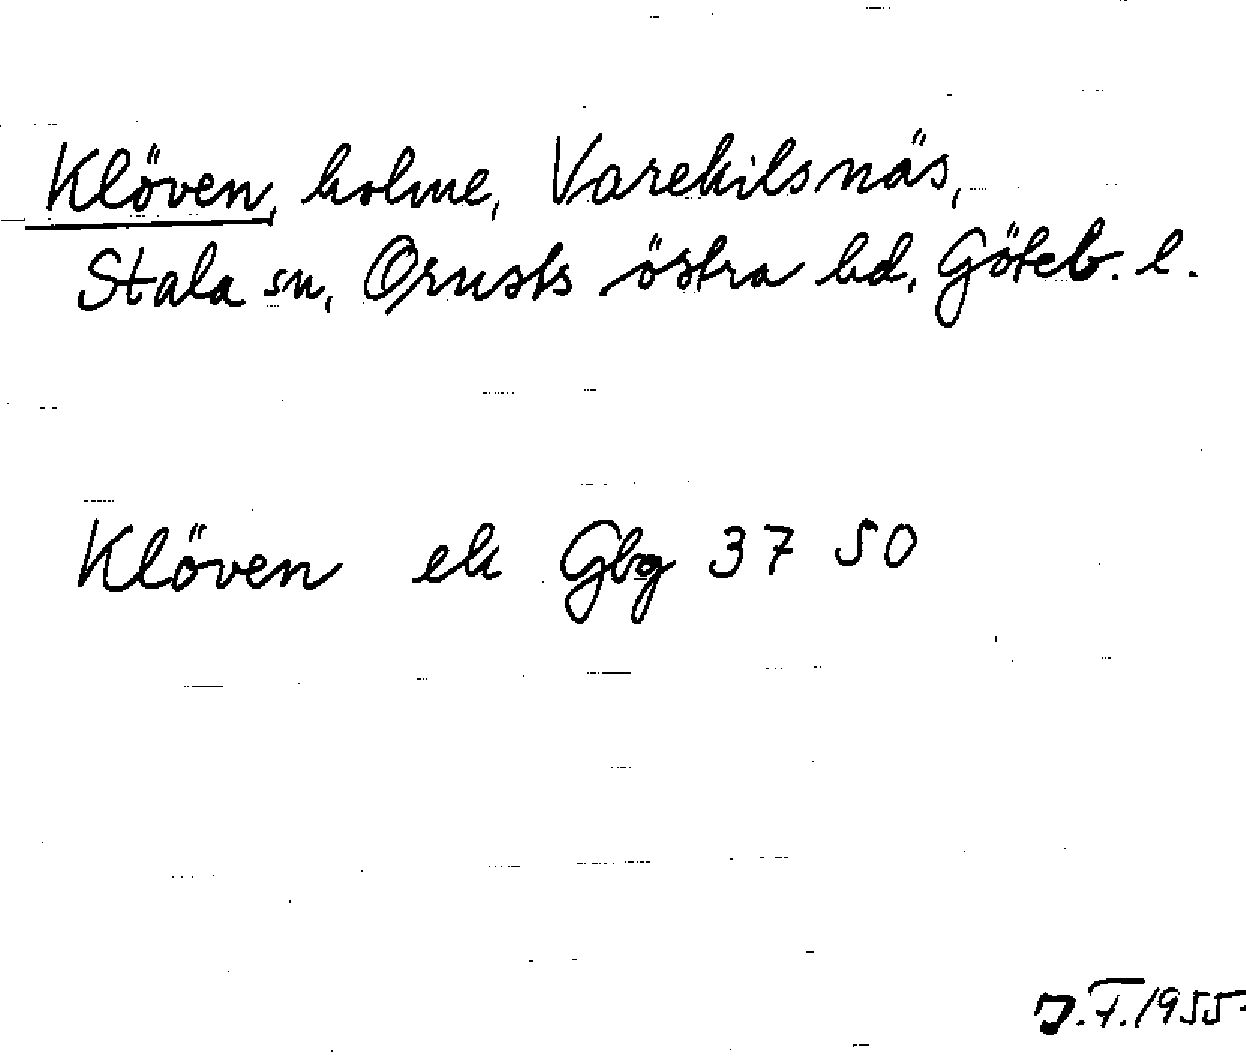 Klöven, holme, Varekilsnäs,
Stala sn, Orusts östra hd, Göteb. l.
Klöven ek Gbg 37 50
J.F.1955.